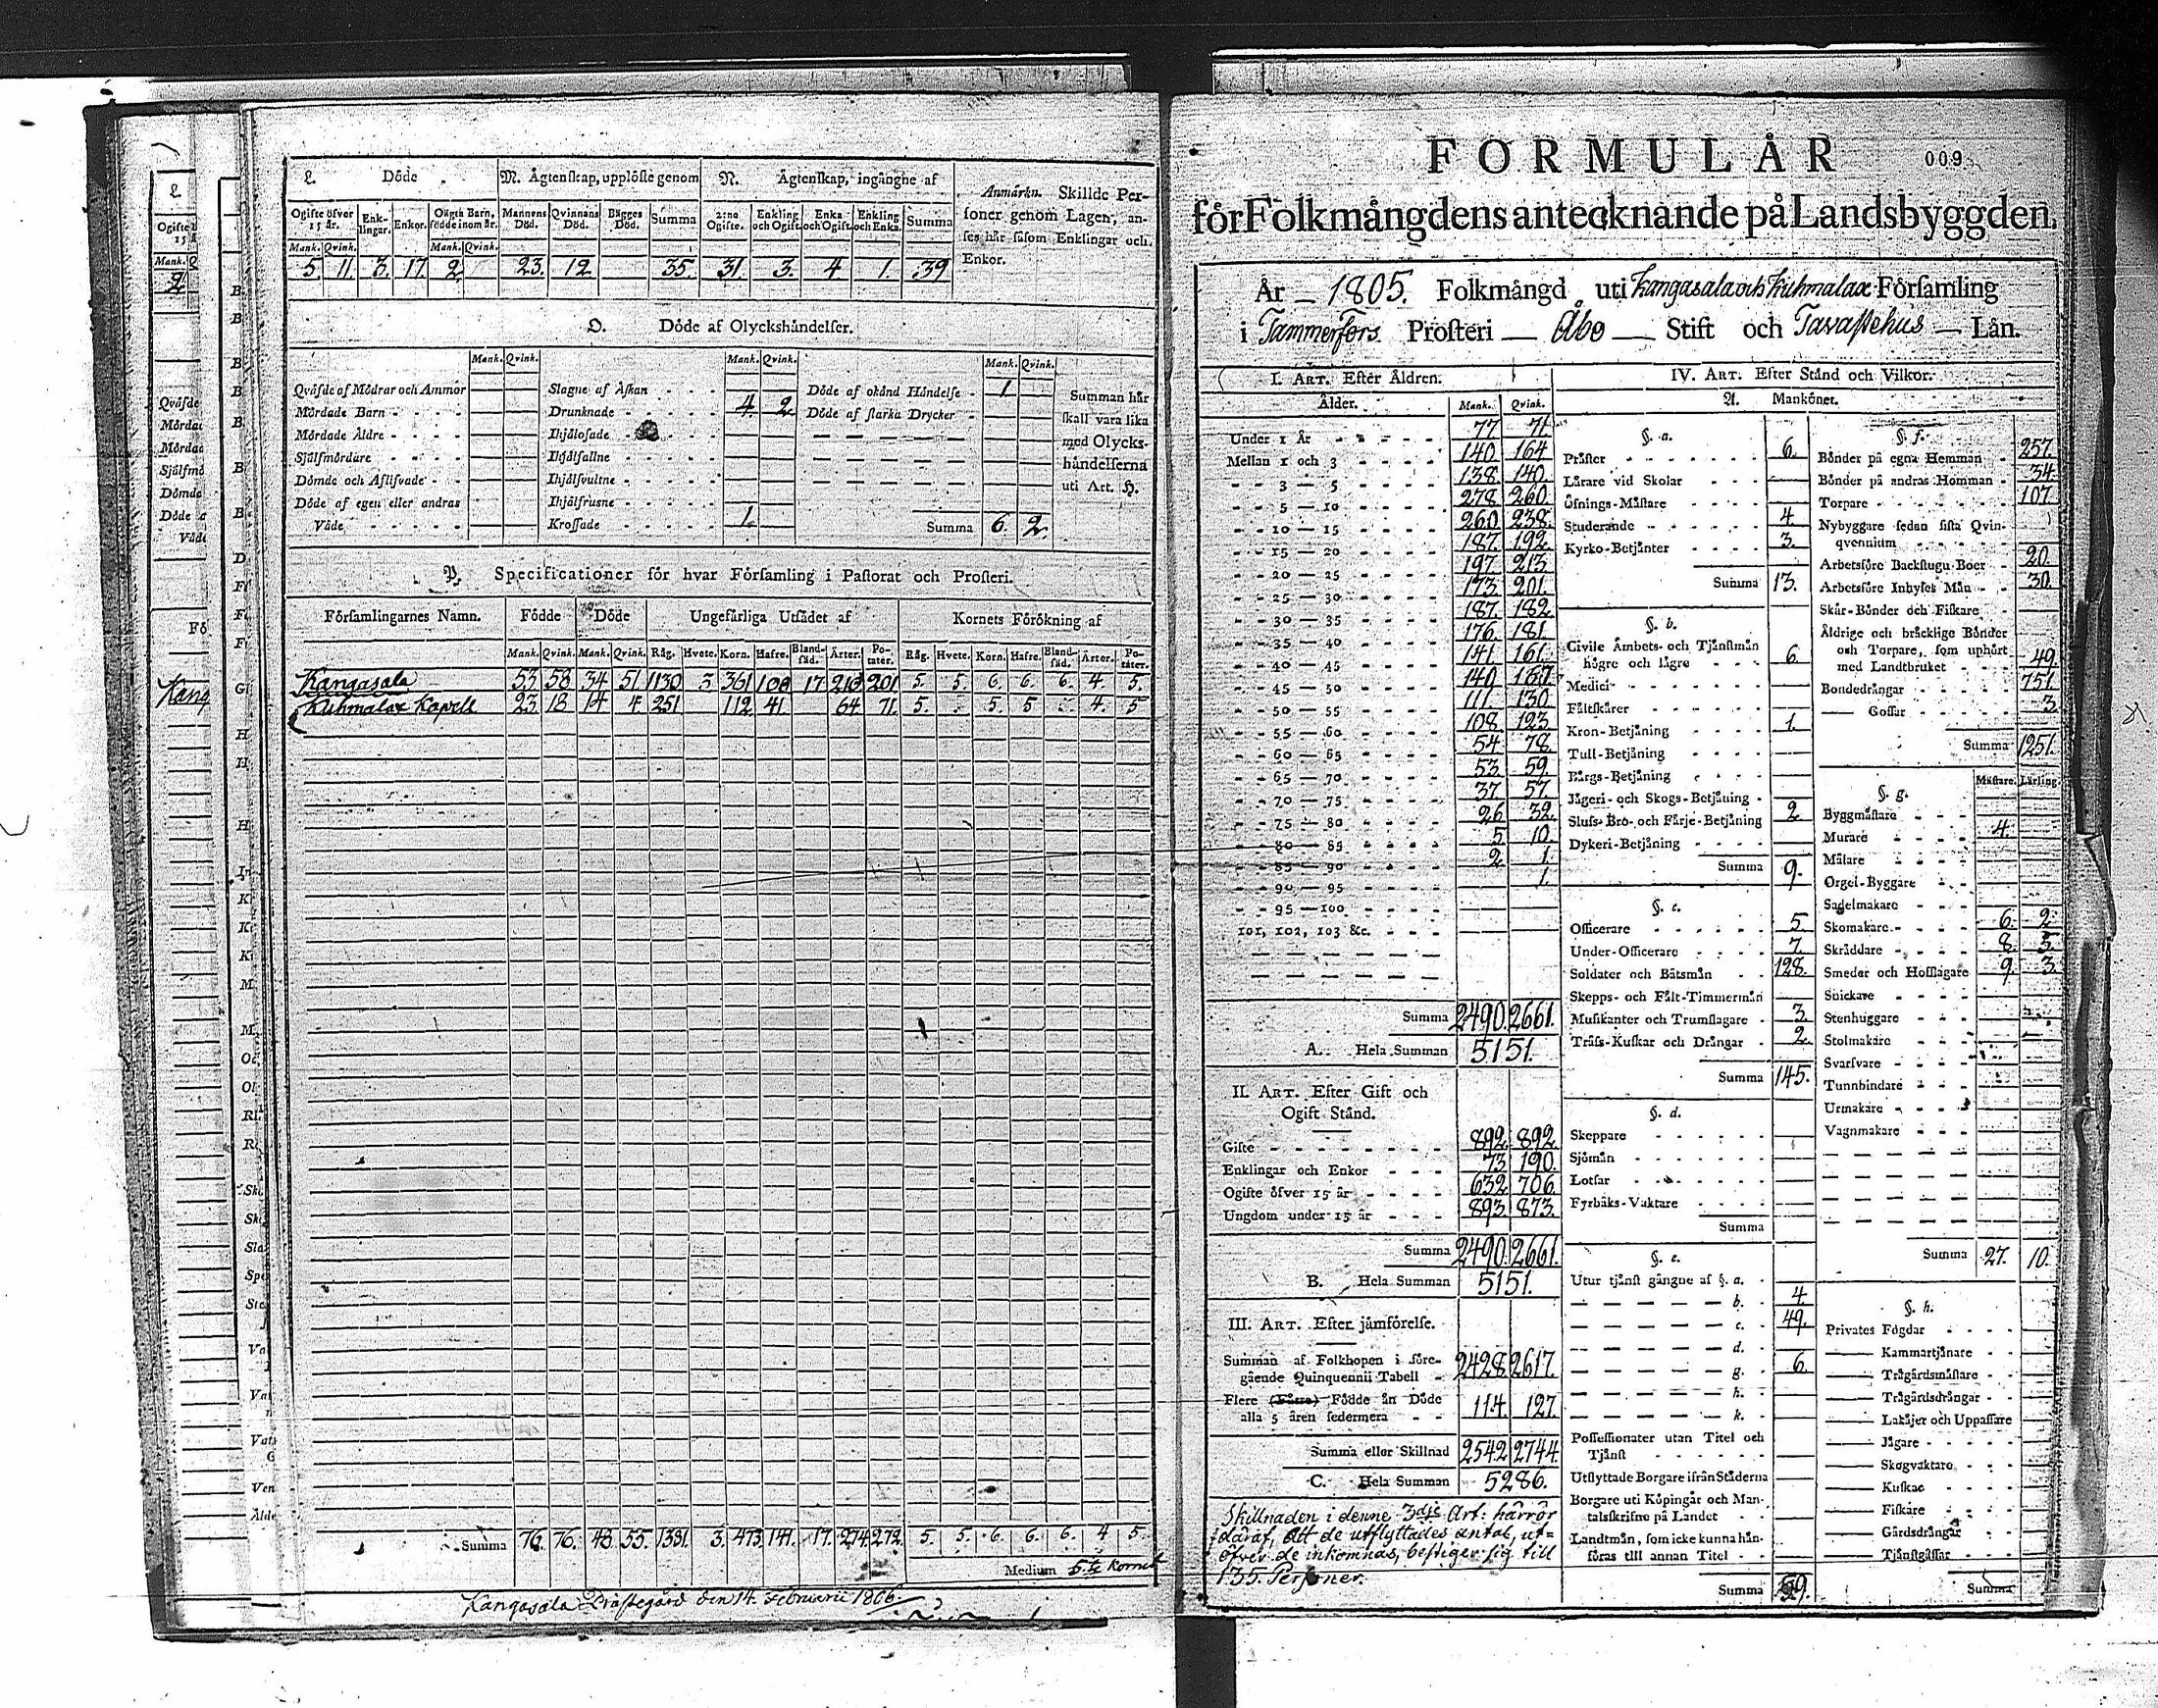 L. Döde
M. Ägtenskap, upplöste genom
N. Ägtenskap, ingångne af
Anmärkn. Skillde Per-
soner genom Lagen, an-
ses här såsom Enklingar och
Enkor.
Ogifte öfver 15 år. Enk-lingar. Enkor. Oägta Barn, födde inom år. Mannens Död. Qvinnans Död. Bägges Död. Summa 2:ne Ogifte. Enkling och Ogift. Enka och Ogift. Enkling och Enka. Summa
Mank. Qvink. Mank. Qvink.
5. 11. 3. 17. 2. 23. 12. 35. 31. 3. 4 1. 39
O. Döde af Olyckshändelser.
Mank. Qvink. Mank. Qvink. Mank. Qvink.
Qväfde af Mödrar och Ammor
Mördade Barn
Mördade Äldre
Självmördare
Dömde och Aflifvade
Döde af egen eller andras
Våde
Slagne af Åskan
Drunknade 4. 2
Ihjälosade
Ihjälfallne
Ihjälsvultne
Ihjälfrusne
Krossade 1.
Döde af okänd Händelse 1
Döde af starka Drycker
Summa 6. 2.
Summan här
skall vara lika
med Olycks-
händelserna
uti Art. H.
P. Specificationer för hvar Församling i Pastorat och Prosteri.
Församlingarnes Namn. Födde Döde Ungefärliga Utsädet af Kornets Förökning af
Mank. Qvink. Mank. Qvink. Råg. Hvete. Korn. Hafre. Bland-säd. Ärter. Po-täter. Råg. Hvete. Korn. Hafre. Bland-säd. Ärter. Po-täter.
Kangasala 53 58 34 51 1130 3 361 100 17 210 201 5. 5. 6. 6. 6. 4. 5.
Kuhmalax Kapell 23 18 14 4 251 112 41 64 71. 5. 5. 5 4. 5
Summa 76. 76. 48. 55. 1381. 3. 473. 141. 17. 274. 272. 5. 5. 6. 6. 6. 4 5.
Medium
Kangasala Prästegård den 14. Februarii 1806.
FORMULÄR
009
för Folkmängdens antecknande på Landsbyggden.
År 1805. Folkmängd uti Kangasala och Kuhmalax Församling
i Tammerfors Prosteri Åbo Stift och Tavastehus Län.
I. ART. Efter Åldren.
Ålder. Mank. Qvink.
Under 1 År 77 71
Mellan 1 och 3 140. 164
3 — 5 138. 140.
5 — 10 278. 260.
10 — 15 260. 238.
15 — 20 187. 192.
20 — 25 197. 213.
25 — 30 173. 201.
30 — 35 187. 182.
35 — 40 176. 181.
40 — 45 141. 161.
45 — 50 140. 167.
50 — 55 111. 130.
55 — 60 108. 123.
60 — 65 54. 78.
65 — 70 53. 59.
70 — 75 37. 57.
75 — 80 26 32.
80 — 85 5. 10.
85 — 90 2. 1.
90 — 95 1.
95 — 100
101, 102, 103 &c.
Summa 2490. 2661.
A. Hela Summan 5151.
II. ART. Efter Gift och
Ogift Stånd.
Gifte 892. 892.
Enklingar och Enkor 73. 190.
Ogifte öfver 15 år 632. 706.
Ungdom under 15 år 893. 873.
Summa 2490. 2661.
B. Hela Summan 5151.
III. ART. Efter jämförelse.
Summan af Folkhopen i före-
gående Quinquennii Tabell 2428. 2617.
Flere (Färre) Födde än Döde
alla 5 åren sedermera 114. 127.
Summa eller Skillnad 2542 2744
C. Hela Summan 5286.
Skillnaden i denne 3dje Art: härrör
däraf, att de utflyttades antal, ut=
öfver de inkomnas, bestiger sig till
135. Personer.
IV. ART. Efter Stånd och Vilkor.
A. Mankönet.
§. a.
Präster 6.
Lärare vid Skolar
Öfnings-Mästare
Studerande 4
Kyrko-Betjänter 3.
Summa 13.
§. b.
Civile Ämbets- och Tjänstmän
högre och lägre 6.
Medici
Fältskärer
Kron-Betjäning 1.
Tull-Betjäning
Bärgs-Betjäning
Jägeri- och Skogs-Betjäning
Sluss- Bro- och Färje-Betjäning 2
Dykeri-Betjäning
Summa 9.
§. c.
Officerare 5
Under-Officerare 7.
Soldater och Båtsmän 128.
Skepps- och Fält-Timmermän
Musikanter och Trumslagare 3.
Träss-Kuskar och Drängar 2.
Summa 145.
§. d.
Skeppare
Sjömän
Lotsar
Fyrbåks-Vaktare
Summa
§. e.
Utur tjänst gångne af §. a.
b. 4.
c. 49.
d.
g. 6.
h.
k.
Possessionater utan Titel och
Tjänst
Utflyttade Borgare ifrån Städerna
Borgare uti Köpingar och Man-
talsskrifne på Landet
Landtmän, som icke kunna hän-
föras till annan Titel
Summa 59.
§. f.
Bönder på egna Hemman 257.
Bönder på andras Hemman 34.
Torpare 107.
Nybyggare sedan sista Qvin-
qvennium
Arbetsföre Backstugu Boer 20.
Arbetsföre Inhyses Män 30.
Skär-Bönder och Fiskare
Äldrige och bräcklige Bönder
och Torpare, som uphört
med Landtbruket 49.
Bondedrängar 751.
Gossar 3.
Summa 1251.
Mästare. Lärling.
§. g.
Byggmästare
Murare 4.
Målare
Orgel-Byggare
Sadelmakare
Skomakare 6. 2.
Skräddare 8. 5.
Smeder och Hofslagare 9. 3.
Snickare
Stenhuggare
Stolmakare
Svarfvare
Tunnbindare
Urmakare
Vagnmakare
Summa 27. 10.
§. h.
Privates Fogdar
Kammartjänare
Trägårdsmästare
Trägårdsdrängar
Lakäjer och Uppassare
Jägare
Skogvaktare
Kuskar
Fiskare
Gårdsdrängar
Tjänstgässar
Summa